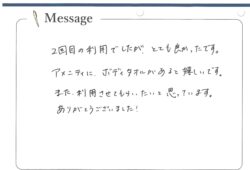 Message
2回目の利用でしたが とても良かったです。
アメニティに、ボディタオルがあると嬉しいです。
また、利用させてもらいたいと思っています。
ありがとうございました!